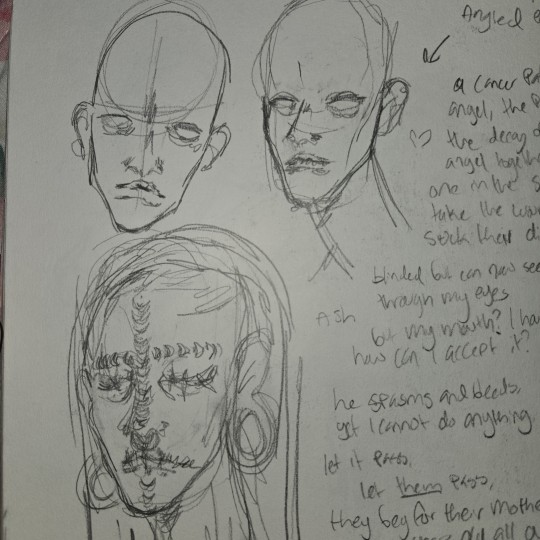 Angled
a cancer
angel, the
the decay of
angel together
one in the
take the
stick their
blinded but can now see
through my eyes
Ash
but my mouth? I
how can I accept it?
he spasms and bleeds,
yet I cannot do anything.
let it pass,
let them pass,
they beg for their
all